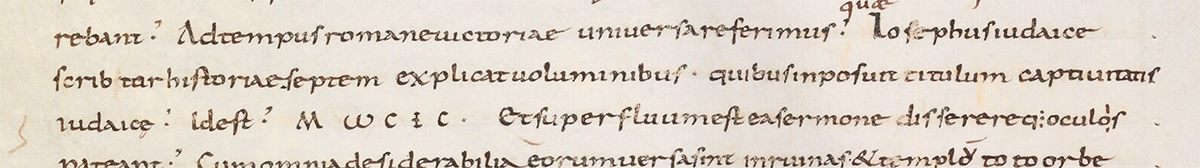 quae
rebant. Ad tempus romane victoriae universa referimus. Iosephus iudaice
scribtor historiae septem explicat voluminibus. quibus inposuit titulum captivitatis
iudaice. Id est. Et superfluum est ea sermone disserere q; oculis
pateant. Cum omnia desiderabilia eorum versa sint in ruinas & templū toto orbe